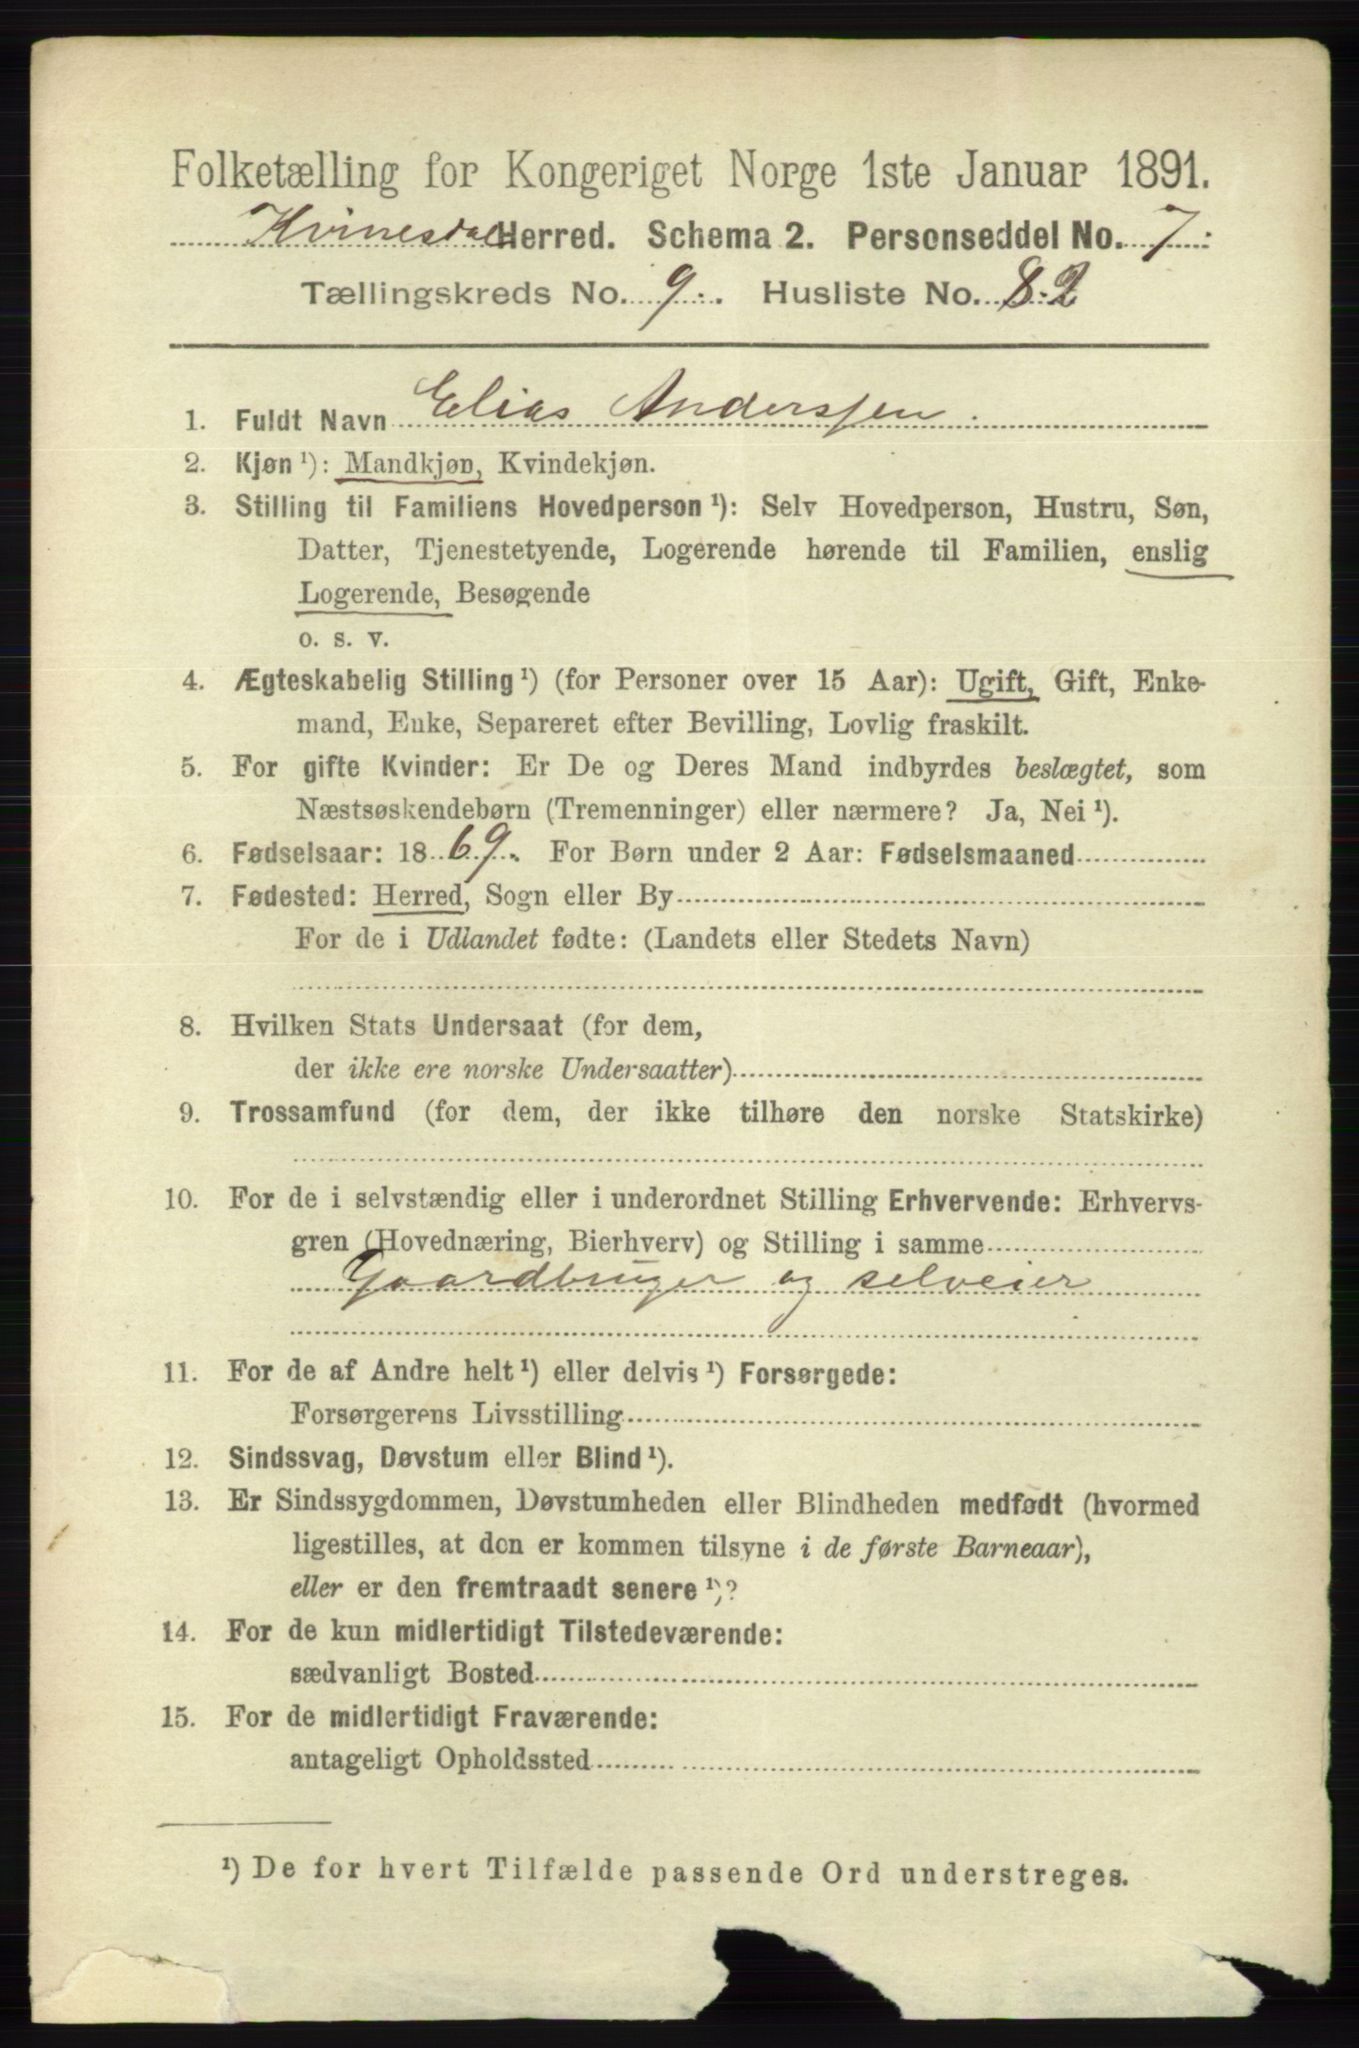 Folketælling for Kongeriget Norge 1ste Januar 1891.
Kvinesdal Herred. Schema 2. Personseddel No. 7.
Tællingskreds No. 9. Husliste No. 82
1. Fuldt Navn Elias Anderssen.
2. Kjøn ¹): Mandkjøn, Kvindekjøn.
3. Stilling til Familiens Hovedperson ¹): Selv Hovedperson, Hustru, Søn,
Datter, Tjenestetyende, Logerende hørende til Familien, enslig
Logerende, Besøgende
o. s. v.
4. Ægteskabelig Stilling ¹) (for Personer over 15 Aar): Ugift, Gift, Enke-
mand, Enke, Separeret efter Bevilling, Lovlig fraskilt.
5. For gifte Kvinder: Er De og Deres Mand indbyrdes beslægtet, som
Næstsøskendebørn (Tremenninger) eller nærmere? Ja, Nei ¹).
6. Fødselsaar: 1869. For Børn under 2 Aar: Fødselsmaaned
7. Fødested: Herred, Sogn eller By
For de i Udlandet fødte: (Landets eller Stedets Navn)
8. Hvilken Stats Undersaat (for dem,
der ikke ere norske Undersaatter)
9. Trossamfund (for dem, der ikke tilhøre den norske Statskirke)
10. For de i selvstændig eller i underordnet Stilling Erhvervende: Erhvervs-
gren (Hovednæring, Bierhverv) og Stilling i samme
Gaardbruger og selveier
11. For de af Andre helt ¹) eller delvis ¹) Forsørgede:
Forsørgerens Livsstilling
12. Sindssvag, Døvstum eller Blind ¹).
13. Er Sindssygdommen, Døvstumheden eller Blindheden medfødt (hvormed
ligestilles, at den er kommen tilsyne i de første Barneaar),
eller er den fremtraadt senere ¹)?
14. For de kun midlertidigt Tilstedeværende:
sædvanligt Bosted
15. For de midlertidigt Fraværende:
antageligt Opholdssted
¹) De for hvert Tilfælde passende Ord understreges.